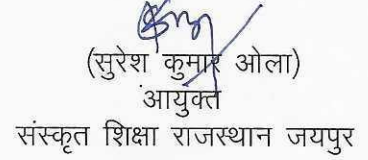 (सुरेश कुमार ओला)
आयुक्त
संस्कृत शिक्षा राजस्थान जयपुर